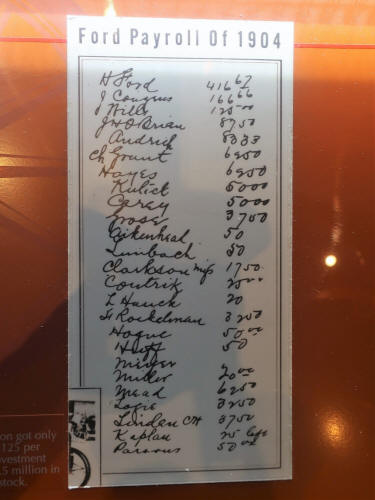 Ford Payroll Of 1904
H Ford 416 67
J Couzens 166 66
J Wills 125 00
J H O'Brian 87 50
Andrich 83 33
Ch Grant 62 50
Hayes 62 50
Kulick 50 00
Carey 50 00
Grose 37 50
Aikenhead 50
Limbach 50
Clarkson 17 50
Coutrik 25 00
L Hauck 20
Rockelman 32 50
Hogue 50 00
Huff 50
Meyer
Miller 20 00
Mead 62 50
Logie 32 50
Linden CH 37 50
Kaplan 25
Parsons 50 00
on got only
125 per
vestment
.5 million in
stock.